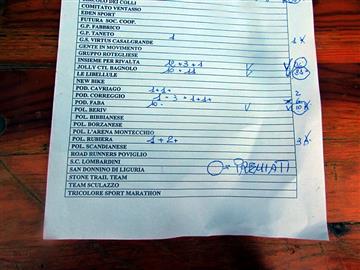 DISCOLO DEI COLLI
COMITATO VENTASSO
EDEN SPORT
FUTURA SOC. COOP.
G.P. FABBRICO
G.P. TANETO
G.S. VIRTUS CASALGRANDE 1 1
GENTE IN MOVIMENTO
GRUPPO ROTEGLIESE
INSIEME PER RIVALTA
JOLLY CTL BAGNOLO 10 + 3 + 1
LE LIBELLULE 10 + 11
NEW BIKE
POD. CAVRIAGO 1 + 1 + 2
POD. CORREGGIO 1 + 3 + 1 + 1 +
POD. FABA 10 10
POL. BERIV
POL. BIBBIANESE
POL. BORZANESE
POL. L'ARENA MONTECCHIO
POL. RUBIERA 1 + 2 + 3
POL. SCANDIANESE
ROAD RUNNERS POVIGLIO
S.C. LOMBARDINI
SAN DONNINO DI LIGURIA = PREMIATI
STONE TRAIL TEAM
TEAM SCULAZZO
TRICOLORE SPORT MARATHON